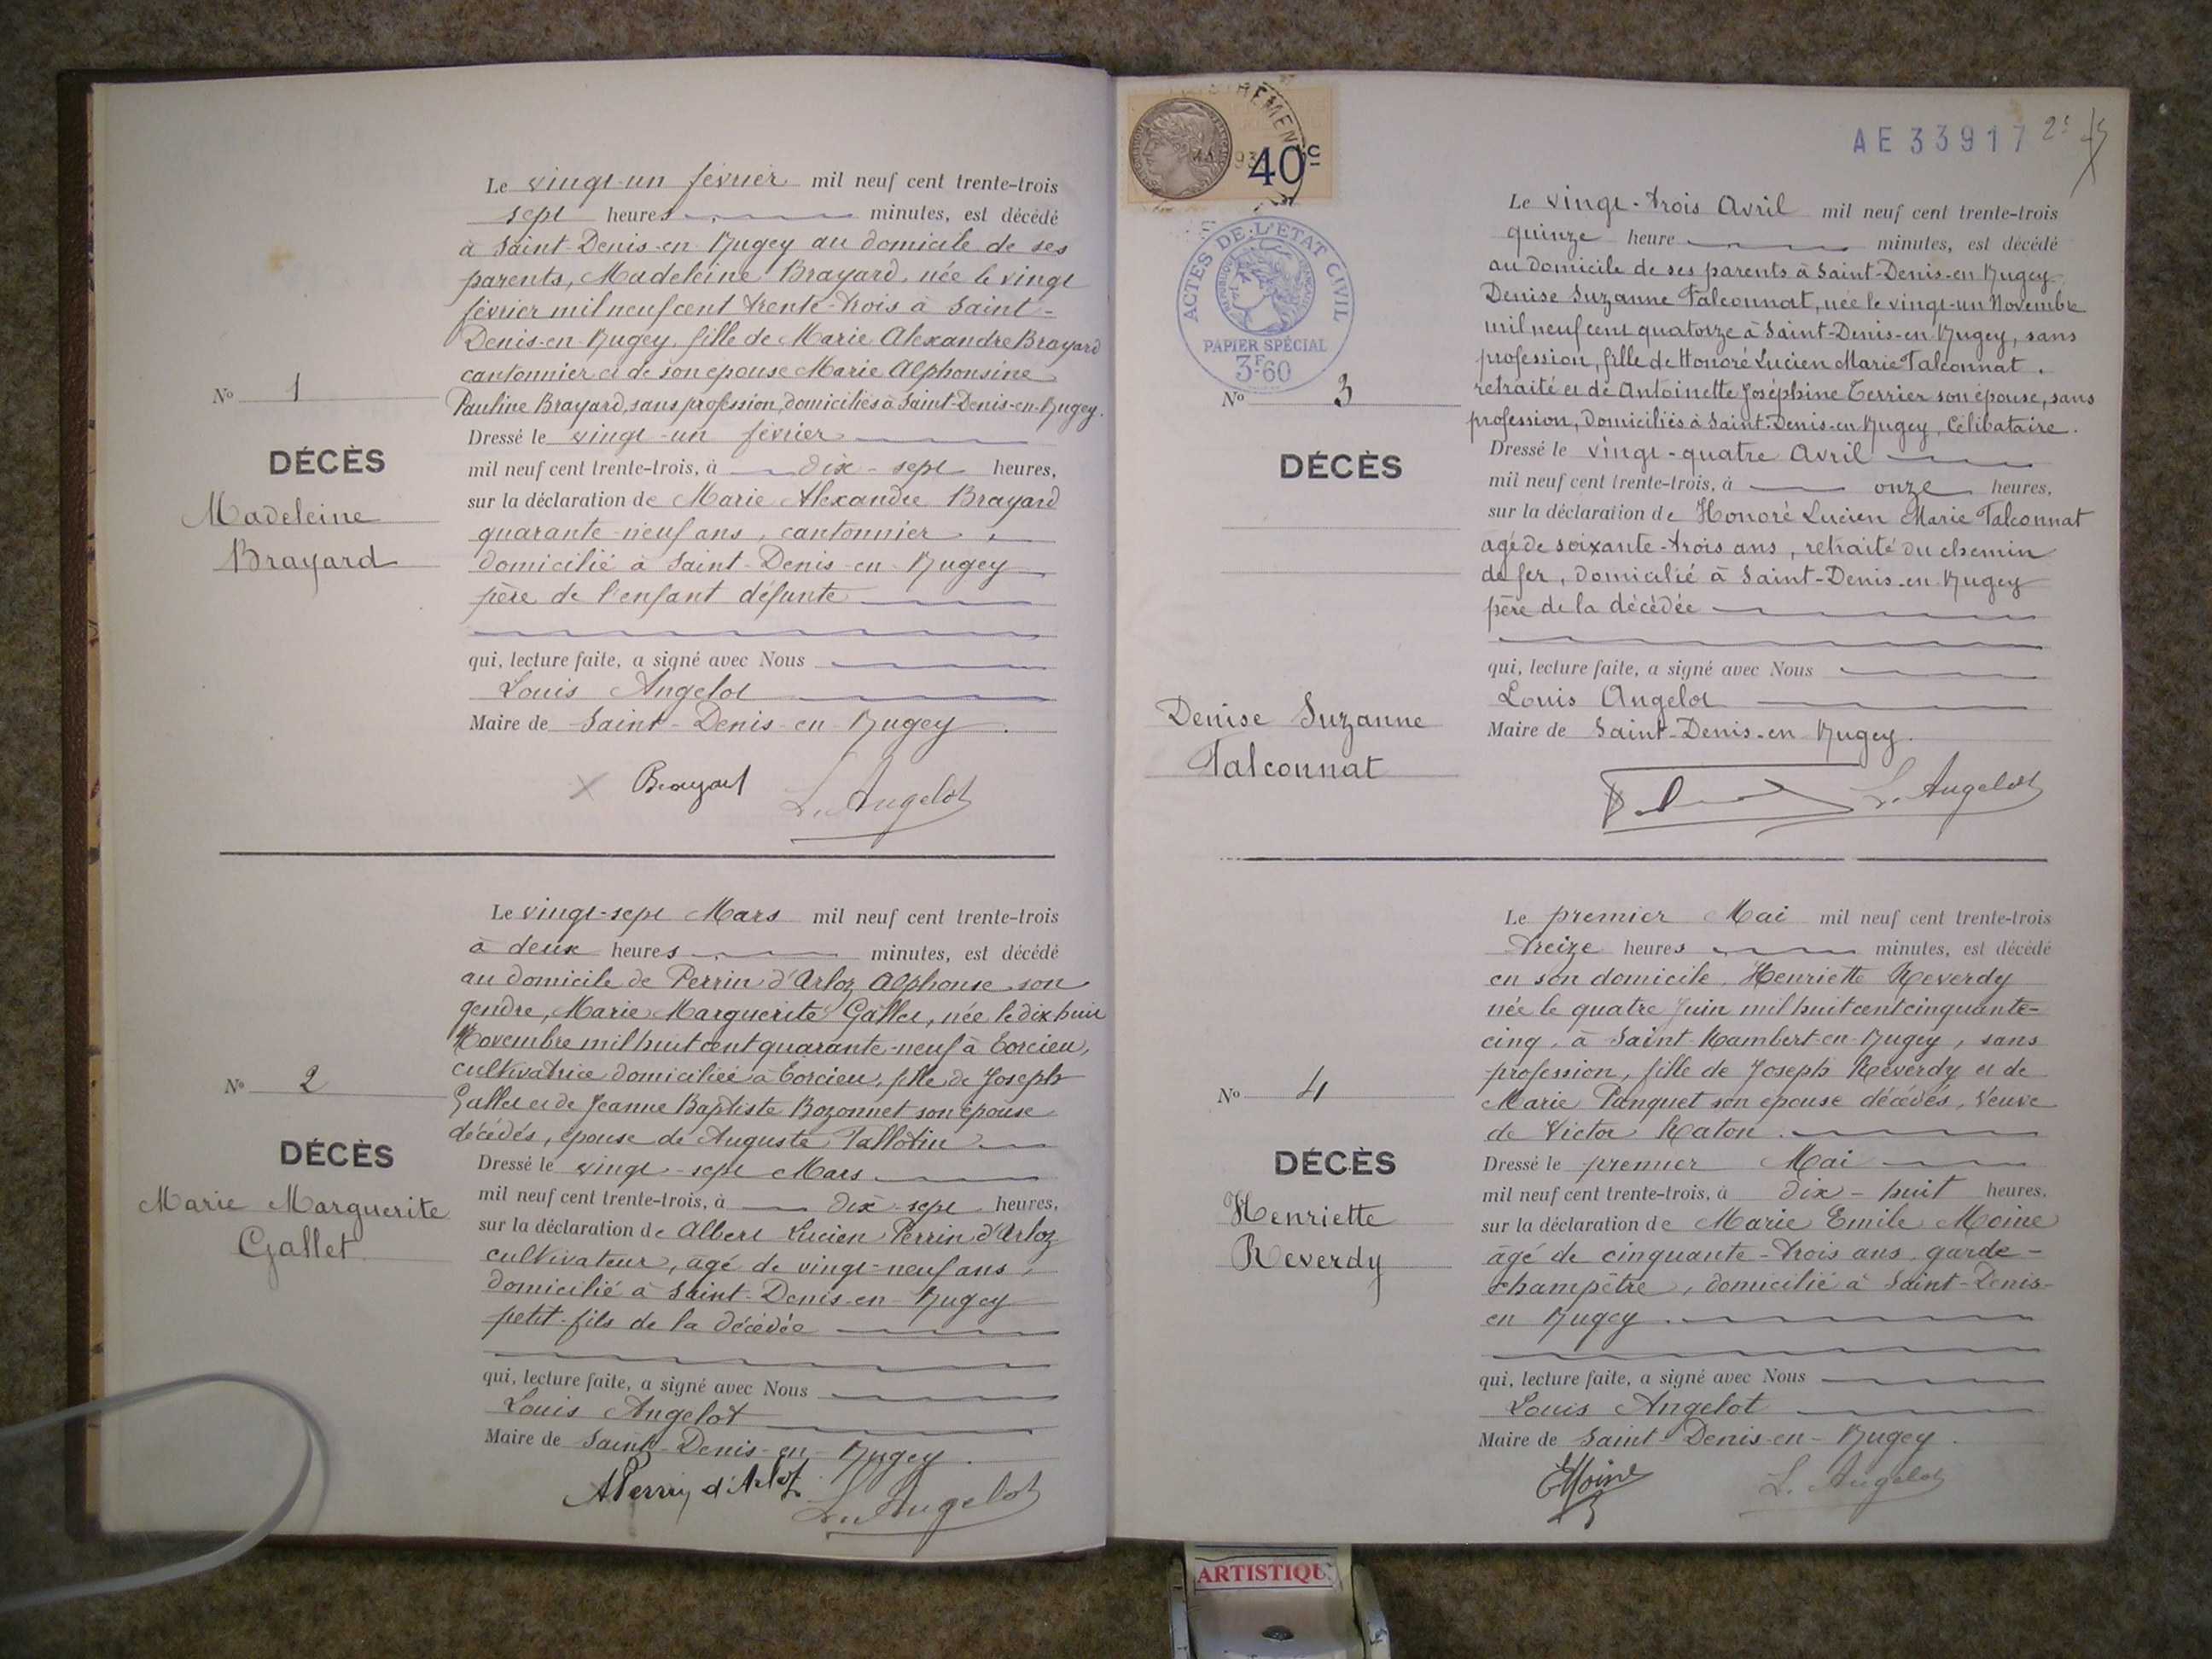 Le vingt-un février mil neuf cent trente-trois
sept heures minutes, est décédé
à Saint-Denis-en-Bugey au domicile de ses
parents, Madeleine Brayard, née le vingt
février mil neuf cent trente-trois à Saint-
Denis-en-Bugey, fille de Marie Alexandre Brayard
cantonnier et de son épouse Marie Alphonsine
Pauline Brayard, sans profession, domiciliés à Saint-Denis-en-Bugey.
Nº 1
DÉCÈS
Madeleine
Brayard
Dressé le vingt-un février
mil neuf cent trente-trois, à dix-sept heures,
sur la déclaration de Marie Alexandre Brayard
quarante-neuf ans, cantonnier,
domicilié à Saint-Denis-en-Bugey
père de l'enfant défunte
qui, lecture faite, a signé avec Nous
Louis Angelot
Maire de Saint-Denis-en-Bugey.
Brayard L. Angelot
Le vingt-sept Mars mil neuf cent trente-trois
à deux heures minutes, est décédé
au domicile de Perrin d'Arloz Alphonse son
gendre, Marie Marguerite Gallet, née le dix huit
Novembre mil huit cent quarante-neuf à Torcieu,
cultivatrice domiciliée à Torcieu, fille de Joseph
Gallet et de Jeanne Baptiste Bozonnet son épouse
décédés, épouse de Auguste Tallotin
Nº 2
DÉCÈS
Marie Marguerite
Gallet
Dressé le vingt-sept Mars
mil neuf cent trente-trois, à dix-sept heures,
sur la déclaration de Albert Lucien Perrin d'Arloz
cultivateur, âgé de vingt-neuf ans,
domicilié à Saint-Denis-en-Bugey
petit-fils de la décédée
qui, lecture faite, a signé avec Nous
Louis Angelot
Maire de Saint-Denis-en-Bugey.
A Perrin d'Arloz L. Angelot
40c
AE 33917
ACTES DE L'ETAT CIVIL
PAPIER SPÉCIAL
3F60
Le vingt-trois Avril mil neuf cent trente-trois
quinze heure minutes, est décédé
au domicile de ses parents à Saint-Denis-en-Bugey
Denise Suzanne Falconnat, née le vingt-un Novembre
mil neuf cent quatorze à Saint-Denis-en-Bugey, sans
profession, fille de Honoré Lucien Marie Falconnat,
retraité et de Antoinette Joséphine Terrier son épouse, sans
profession, domiciliés à Saint-Denis-en-Bugey, Célibataire.
Nº 3
DÉCÈS
Denise Suzanne
Falconnat
Dressé le vingt-quatre Avril
mil neuf cent trente-trois, à onze heures,
sur la déclaration de Honoré Lucien Marie Falconnat
agé de soixante-trois ans, retraité du chemin
de fer, domicilié à Saint-Denis-en-Bugey
père de la décédée
qui, lecture faite, a signé avec Nous
Louis Angelot
Maire de Saint-Denis-en-Bugey.
L. Angelot
Le premier Mai mil neuf cent trente-trois
treize heures minutes, est décédé
en son domicile, Henriette Reverdy
née le quatre Juin mil huit cent cinquante-
cinq, à Saint-Rambert-en-Bugey, sans
profession, fille de Joseph Reverdy et de
Marie Panquet son épouse décédés, Veuve
de Victor Raton.
Nº 4
DÉCÈS
Henriette
Reverdy
Dressé le premier Mai
mil neuf cent trente-trois, à dix-huit heures,
sur la déclaration de Marie Emile Moine
âgé de cinquante-trois ans, garde-
champêtre, domicilié à Saint-Denis-
en Bugey.
qui, lecture faite, a signé avec Nous
Louis Angelot
Maire de Saint-Denis-en-Bugey.
EMoine L. Angelot
ARTISTIQU